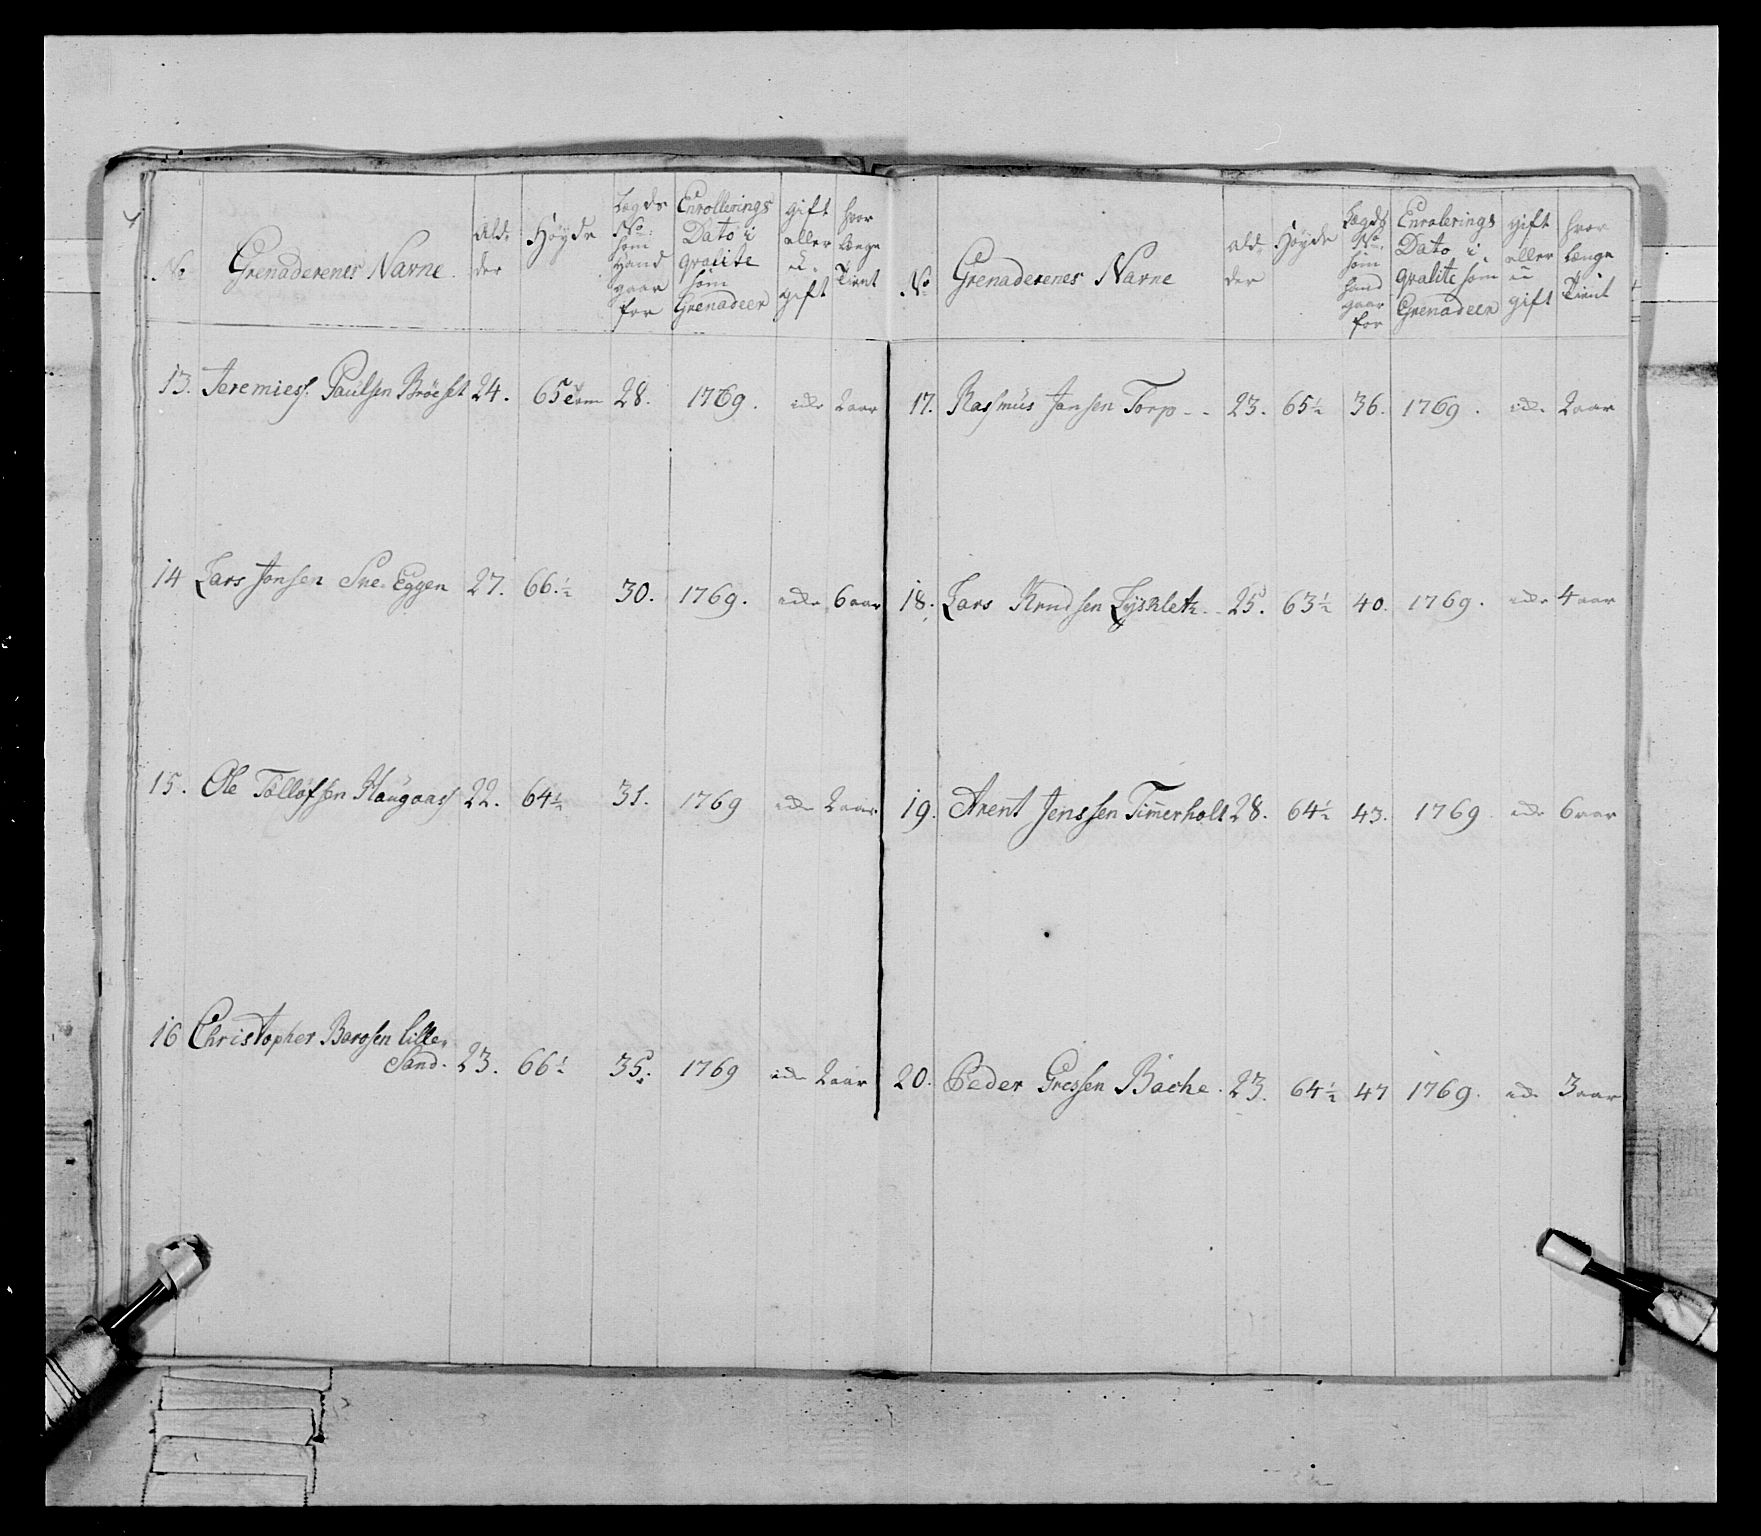 No
Grenaderenes Navne.
Al-
der
Høyde
Lægds
No
som
Hand
gaar
for
Enrollerings
Dato i
qvalite
som
Grenadeer
gift
eller
u-
gift
hvor
længe
Tient
13. Jeremiess. Paulsen Bröeset 24. 65 Tom 28. 1769. idem 2 aar
14 Lars Jonsen Sne-Eggen 27. 66 ½ 30. 1769. idem 6 aar
15. Ole Tollofsen Haugaass 22. 64 ½ 31. 1769 idem 2 aar
16 Christopher Barosen Lille-
Sand. 23. 66 ½ 35. 1769 idem 2 aar
No
Grenaderenes Navne
Al-
der
Høyde
Lægds
No
som
hand
gaar
for
Enrolerings
Dato i
qvalite som
Grenadeer
gift
eller
u
gift
hvor
længe
Tient
17. Rasmüs Jansen Torp - - 23. 65 ½ 36. 1769. idem 2 aar
18. Lars Knudsen Lysklett 25. 63 ½ 40. 1769. idem 4 aar
19. Arent Jenssen Tim̄erholt 28. 64 ½ 43. 1769 idem 6 aar
20. Peder Gressen Bache. 23. 64 ½ 47 1769. idem 3 aar